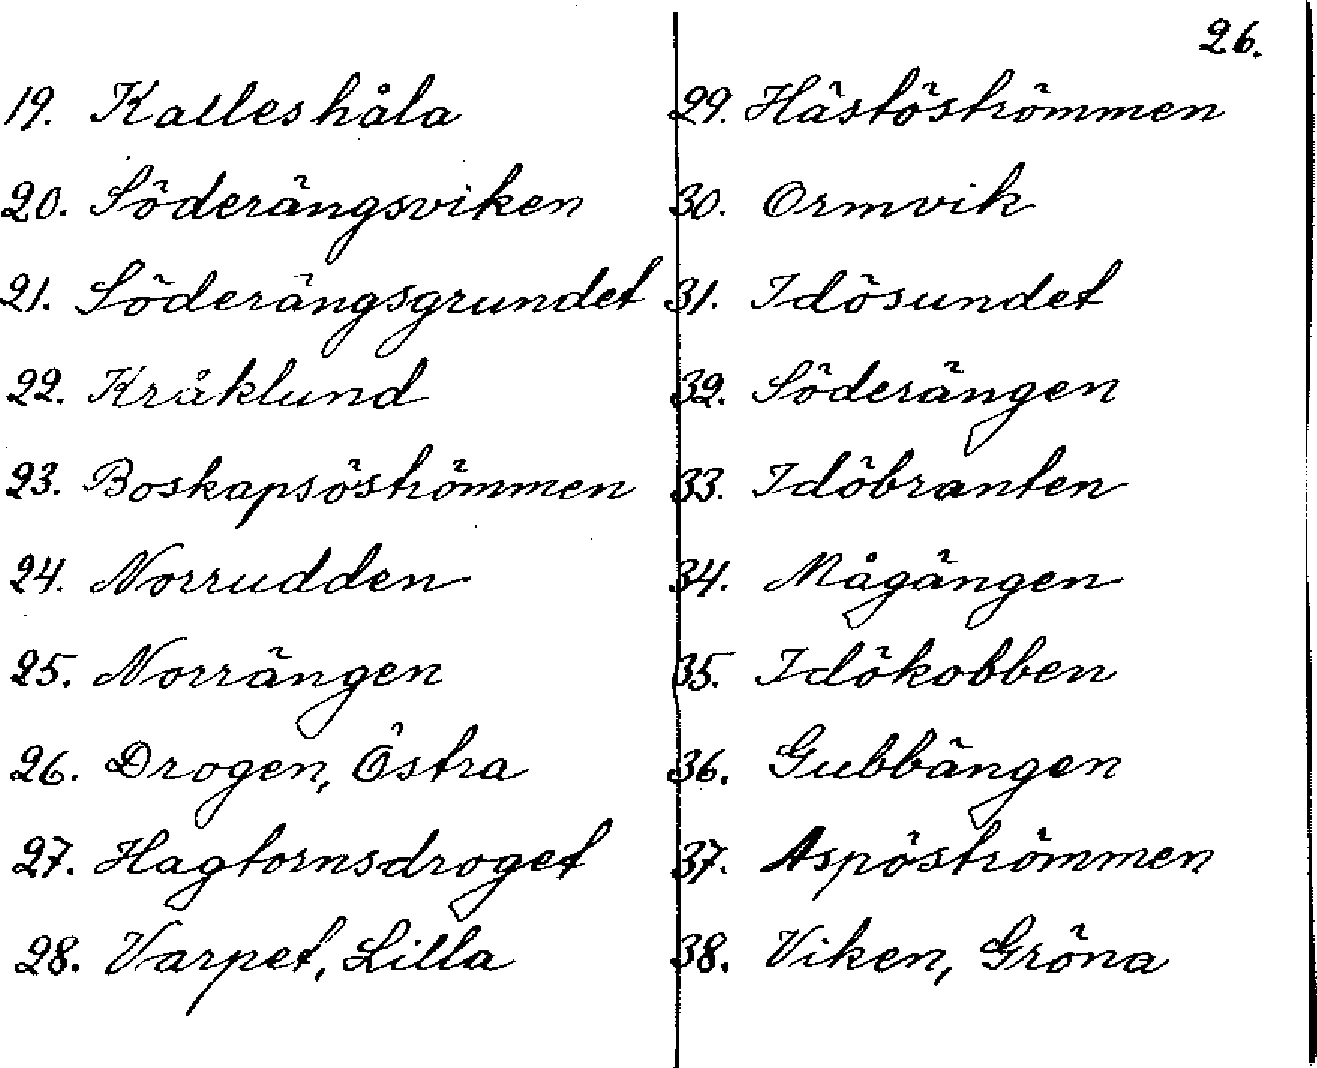 26.
19. Kalleshåla
20. Söderängsviken
21. Söderängsgrundet
22. Kråklund
23. Boskapsöströmmen
24. Norrudden
25. Norrängen
26. Drogen, Östra
27. Hagtornsdroget
28. Varpet, Lilla
29. Hästöströmmen
30. Ormvik
31. Idösundet
32. Söderängen
33. Idöbranten
34. Mågången
35. Idökobben
36. Gubbängen
37. Aspöströmmen
38. Viken, Gröna